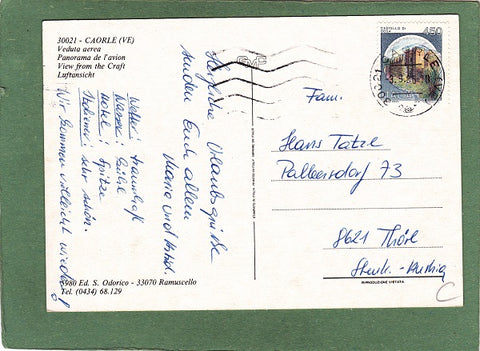 30021 - CAORLE (VE)
Veduta aerea
Panorama de l'avion
View from the Craft
Luftansicht
Herzliche Urlaubsgrüße
senden Euch allen
Maria und
Wetter: traumhaft
Wasser: Kühl
Hotel: Spitze
Italiener: sehr schön.
Wir kommen vielleicht wieder!
5980 Ed. S. Odorico - 33070 Ramuscello
Tel. (0434) 68.129
450
30021
Fam.
Hans Tatze
Palbersdorf 73
8621 Thörl
Stmk. - Austria
RIPRODUZIONE VIETATA
C